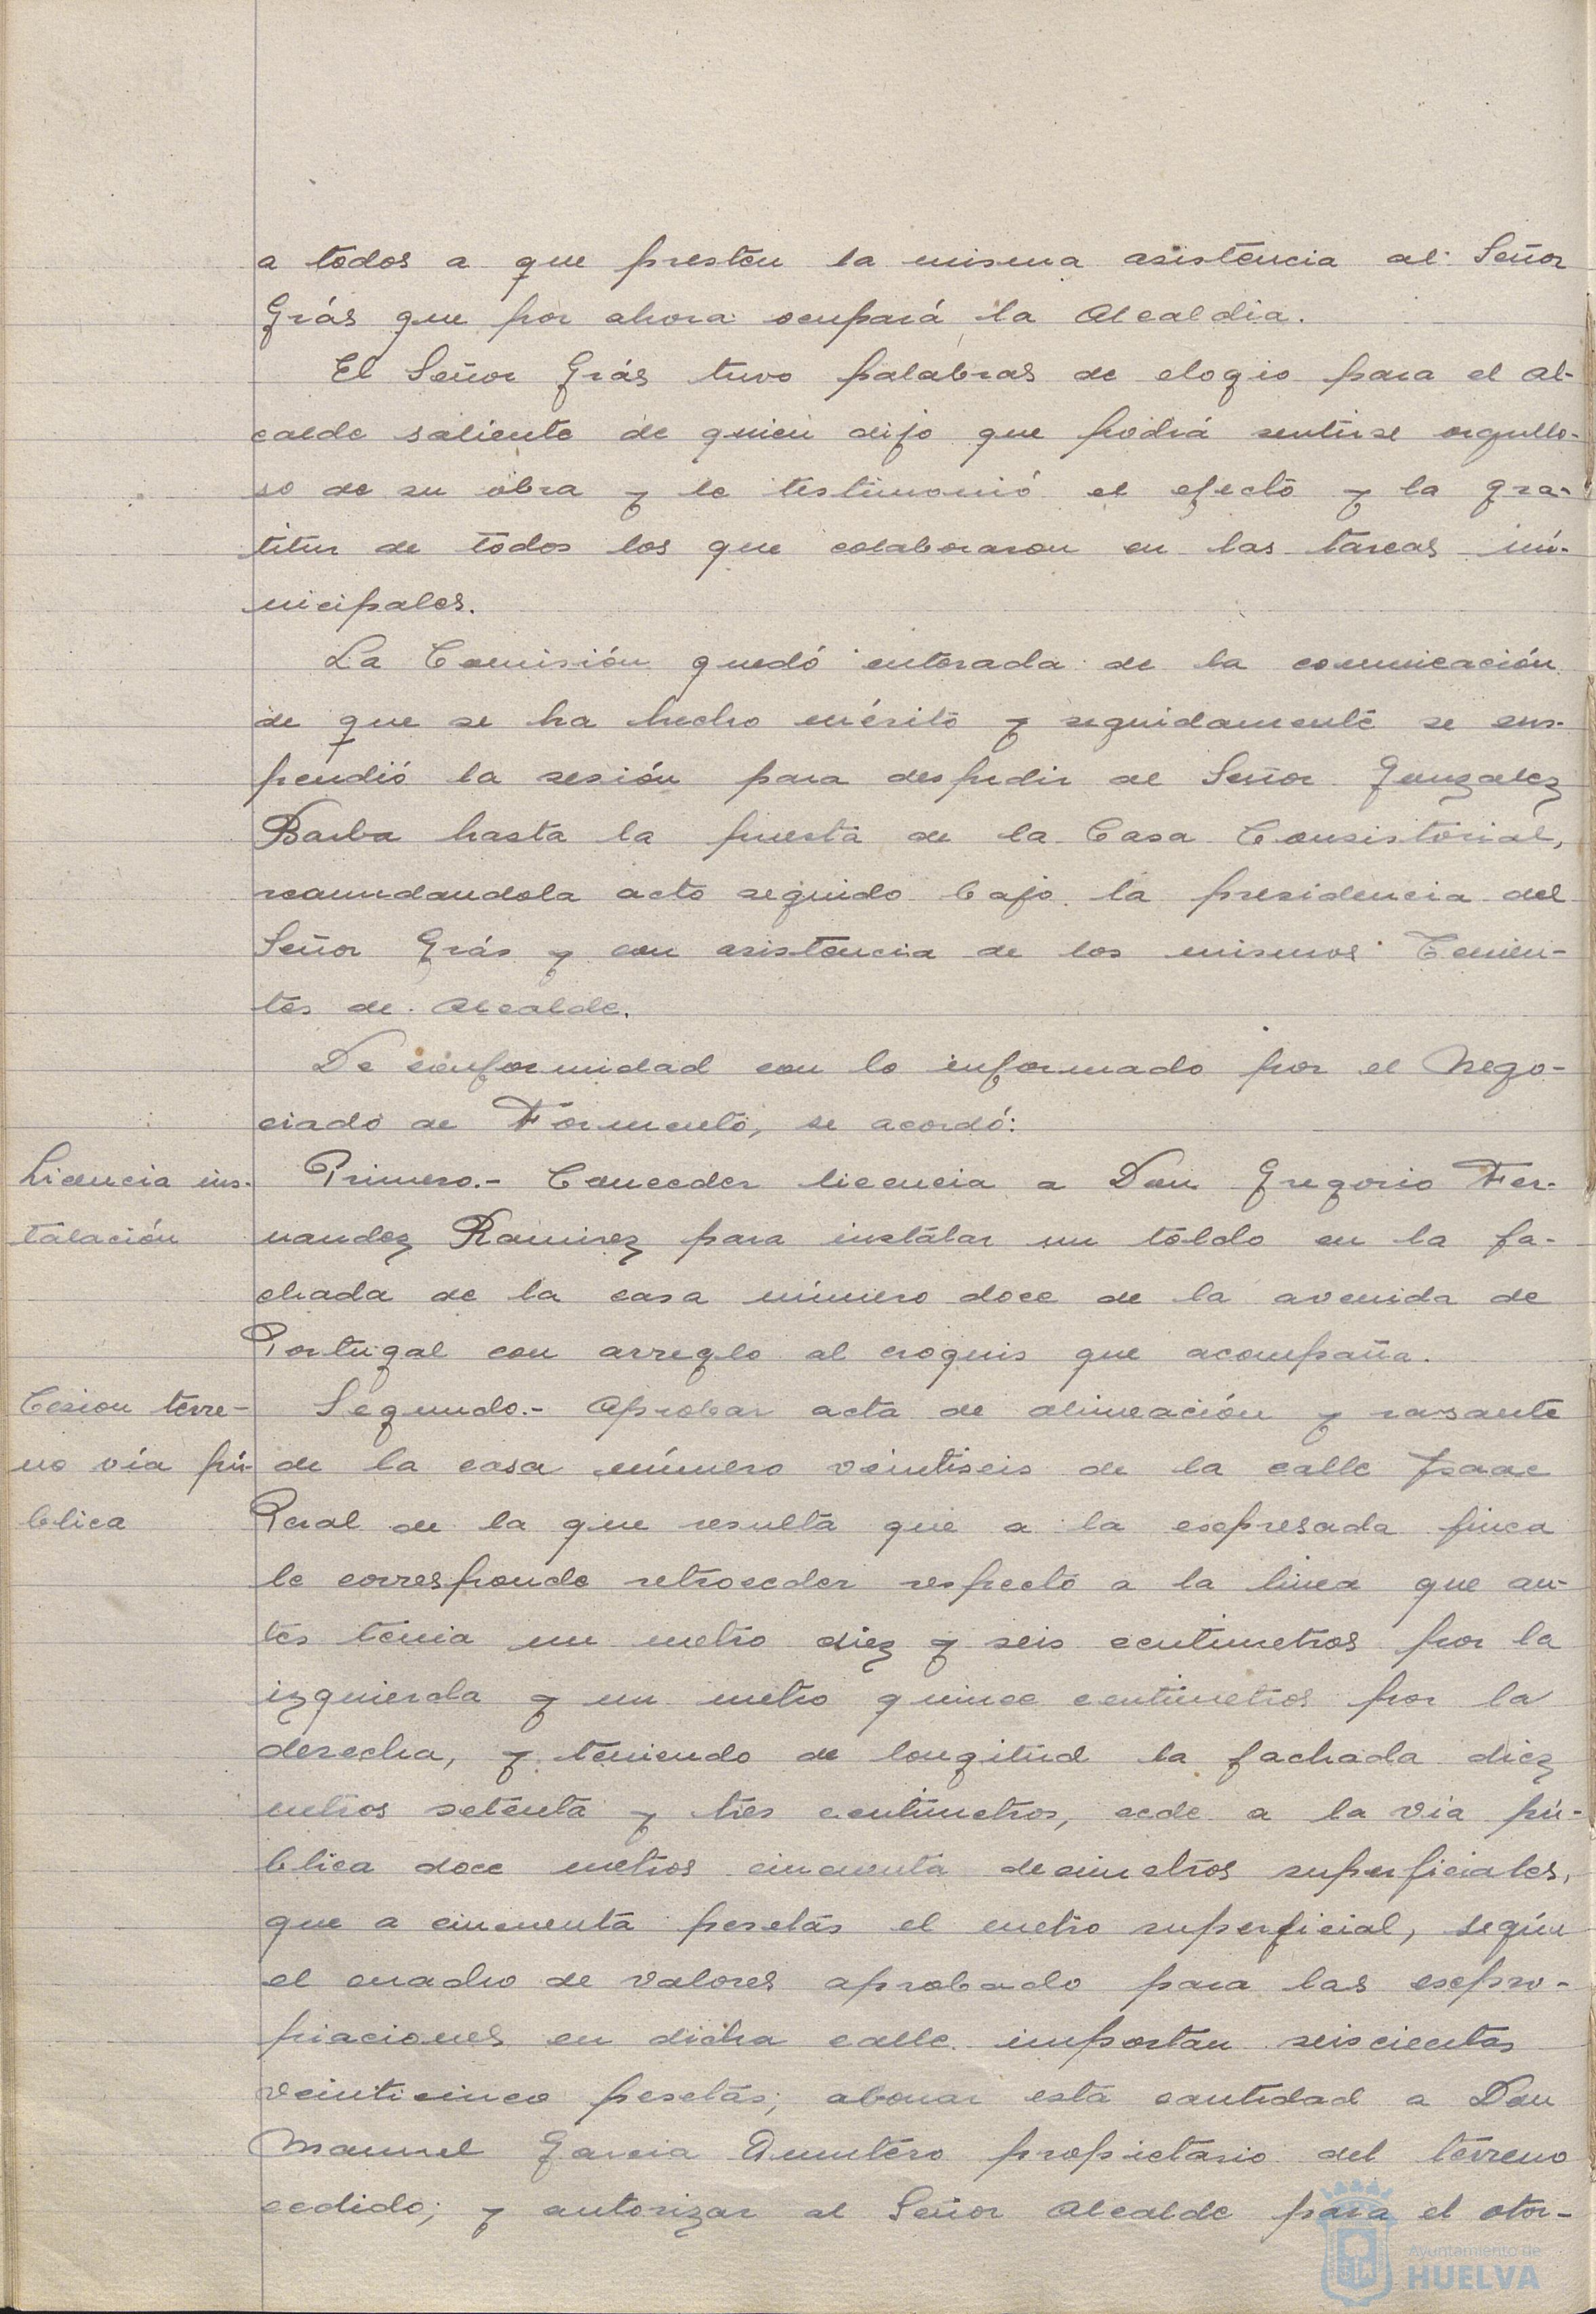 a todos a que presten la misma asistencia al Señor
Grás que por ahora ocupará la Alcaldia.
El Señor Grás tuvo palabras de elogio para el Al-
calde saliente de quien dijo que podrá sentirse orgullo-
so de su obra y le testimonió el efecto y la gra-
titur de todos los que colaboraron en las tareas mu-
nicipales.
La Comisión quedó enterada de la comunicación
de que se ha hecho mérito y seguidamente se sus-
pendió la sesión para despedir al Señor Gonzalez
Barba hasta la puerta de la Casa Consistorial,
reanundandola acto seguido bajo la presidencia del
Señor Grás y con asistencia de los mismos Tenien-
tes de Alcalde.
De conformidad con lo informado por el Nego-
ciado de Formento, se acordó:
Licencia ins-
talación
Primero.- Conceder licencia a Don Gregorio Fer-
nandez Ramirez para instalar un toldo en la fa-
chada de la casa número doce de la avenida de
Portugal con arreglo al croquis que acompaña.
Cesion terre-
no via pú-
blica
Segundo.- Aprobar acta de alineación y rasante
de la casa número veintiseis de la calle Isaac
Peral de la que resulta que a la espresada finca
le corresponde retroceder respecto a la linea que an-
tes tenia un metro diez y seis centimetros por la
izquierda y un metro quince centimetros por la
derecha, y teniendo de longitud la fachada diez
metros setenta y tres centimetros, cede a la via pú-
blica doce metros cincuenta decimetros superficiales,
que a cincuenta pesetas el metro superficial, según
el cuadro de valores aprobado para las escpro-
piaciones en dicha calle importan seiscientas
veinticinco pesetas; abonar esta cantidad a Don
Manuel Garcia Quintero propietario del terreno
cedido; y autorizar al Señor Alcalde para el otor-
Ayuntamiento de
HUELVA